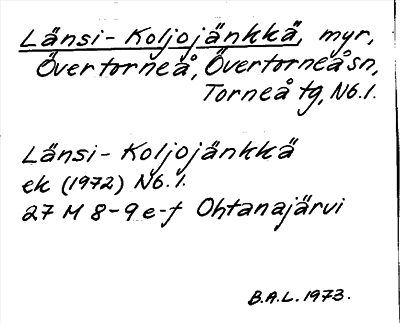 Länsi-Koljojänkkä, myr,
Övertorneå, Övertorneå sn,
Torneå tg, N6.1.
Länsi-Koljojänkkä
ek (1972) N6.1.
27 M 8-9 e-f Ohtanajärvi
B.A.L. 1973.